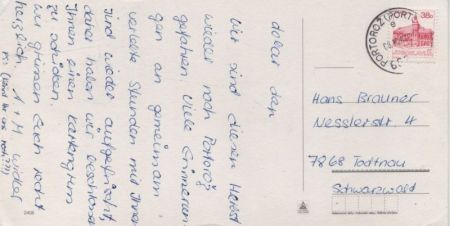 dober dan
Wir sind diesen Herbst
wieder nach Portorož
gefahren. Viele Erinnerun-
gen an gemeinsam
verlebte Stunden mit Ihnen
sind wieder aufgefrischt,
dabei haben wir beschlossen
Ihnen einen Kartengruss
zu schicken.
Wir grüssen Euch recht
herzlich A + M
PORTOROŽ (PORT
38.-
Hans Brauner
Nesslerstr. 4
7868 Todtnau
Schwarzwald